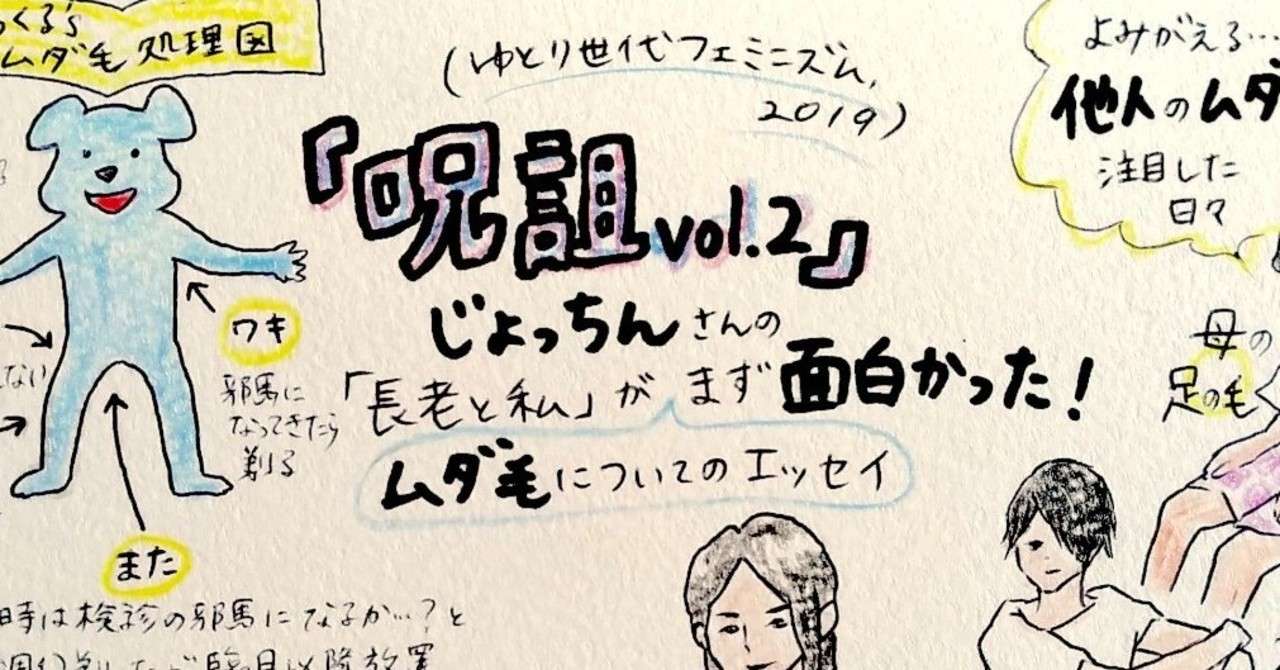 くる's
ムダ毛処理図
(ゆとり世代フェミニズム,
2019)
『呪詛vol.2』
じょっちんさんの
「長老と私」がまず面白かった!
ムダ毛についてのエッセイ
よみがえる…
他人のムダ
注目した
日々
母の
足の毛
ワキ
邪魔に
なってきたら
剃る
ない
また
時は検診の邪魔になるか…?と
以降放置